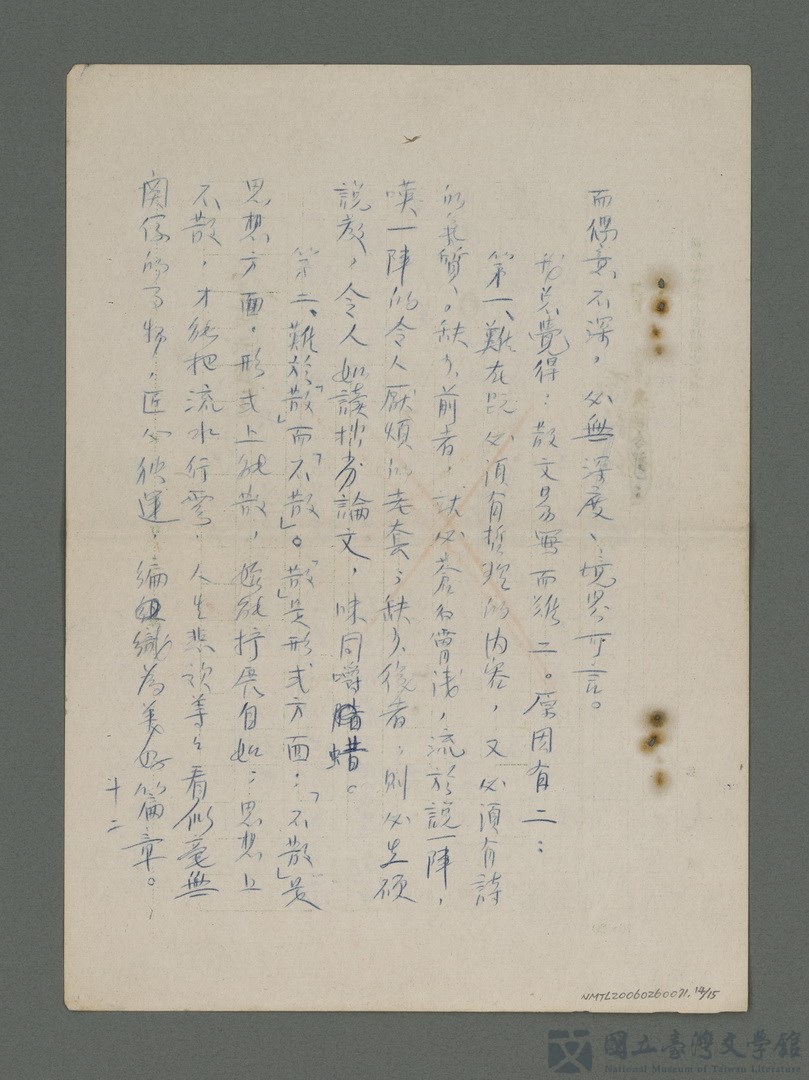 而偶意不深，必無深度、境界可言。
我总覺得：散文易寫而難工。原因有二：
第一、難在既必須有哲理的内容，又必須有詩
的氣質。缺少前者，就必蒼白膚淺，流於說一陣，
嘆一陣的令人厭煩的老套；缺少後者，則必生硬
說教，令人如讀拙劣論文，味同嚼蜡。
第二、難於「散」而「不散」。「散」是形式方面；「不散」是
思想方面。形式上能散，始能抒展自如；思想上
不散，才能把流水行雲，人生悲歡等々看似毫無
関係的事物，匠心独運，編織為美好篇章。
十二
NMTL20060260071, 14/15
國立臺灣文學館
National Museum of Taiwan Literature